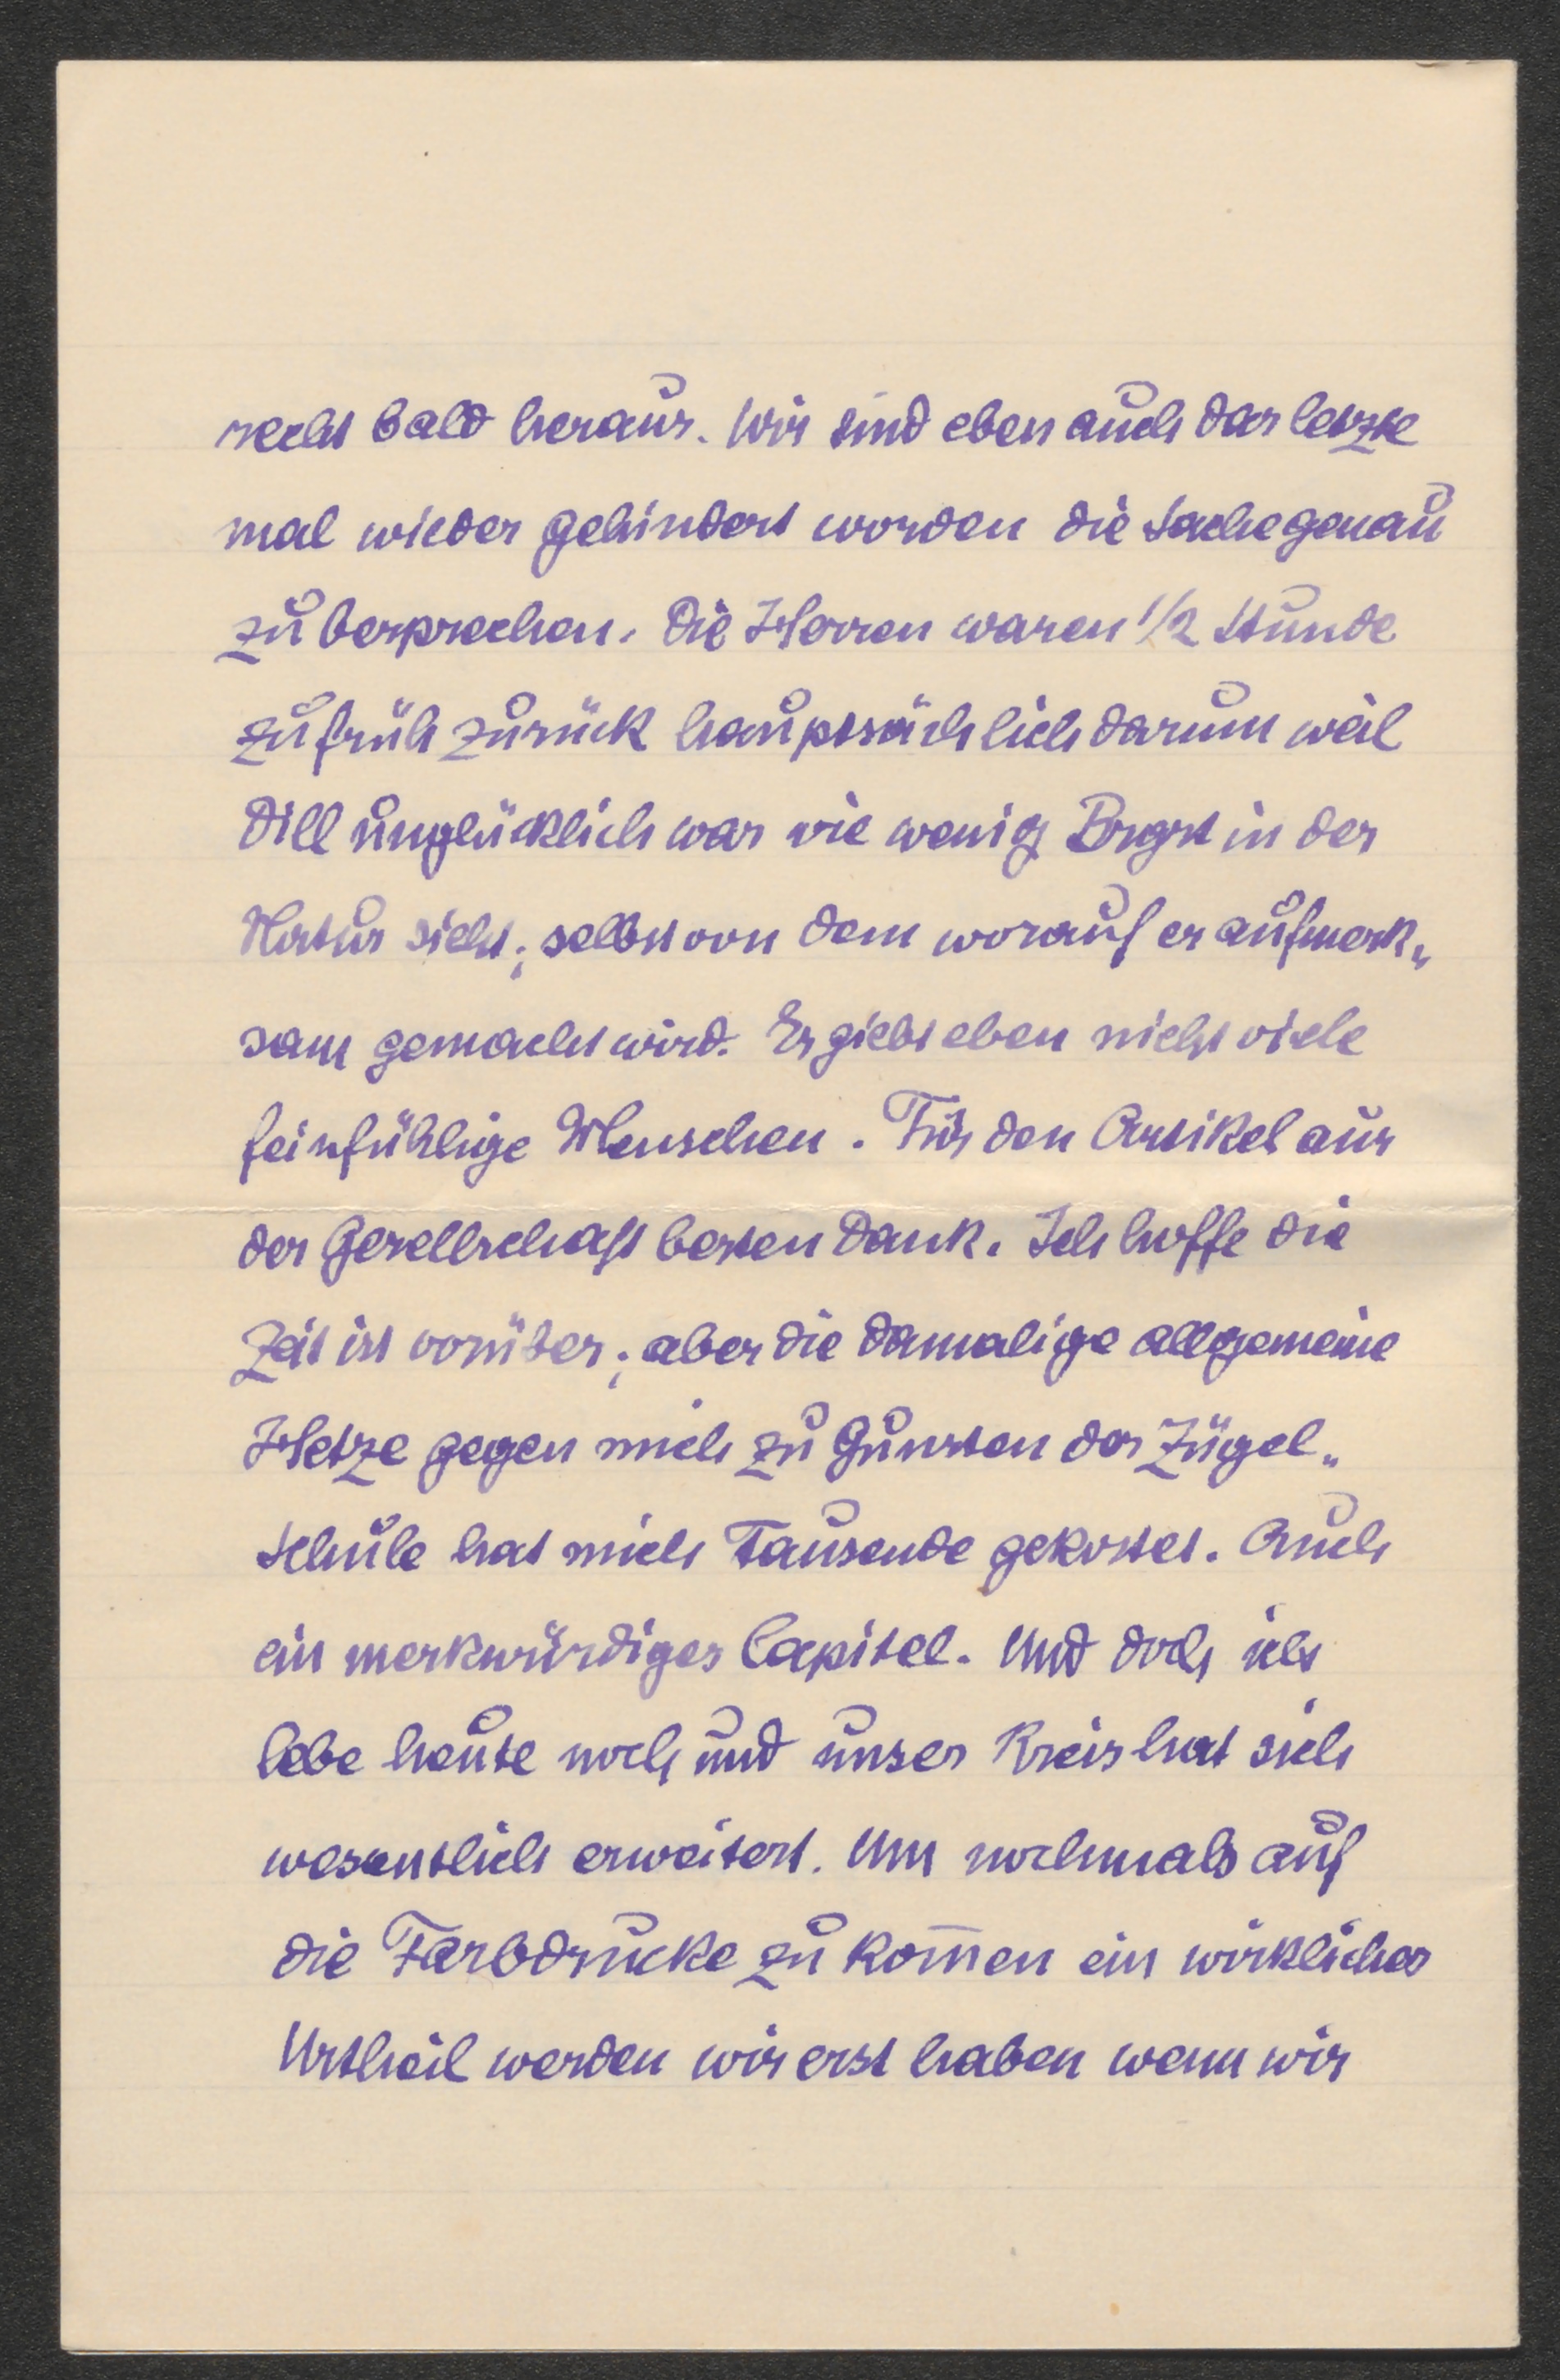 recht bald heraus. Wir sind eben auch das letzte
mal wieder gehindert worden die Sache genau
zu besprechen. Die Herren waren 1/2 Stunde
zu früh zurück hauptsächlich darum weil
Dill unglücklich war wie wenig in der
Natur sieht; selbst von dem worauf er aufmerk„
sam gemacht wird. Es giebt eben nicht viele
feinfühlige Menschen. Für den Artikel aus
der Gesellschaft besten Dank. Ich hoffe die
Zeit ist vorüber; aber die damalige allgemeine
Hetze gegen mich zu Gunsten der Zügel„
schule hat mich Tausende gekostet. Auch
ein merkwürdiges Capitel. Und doch ich
lebe heute noch und unser Kreis hat sich
wesentlich erweitert. Um nochmals auf
die Farbdrucke zu kom̄en ein wirkliches
Urtheil werden wir erst haben wenn wir